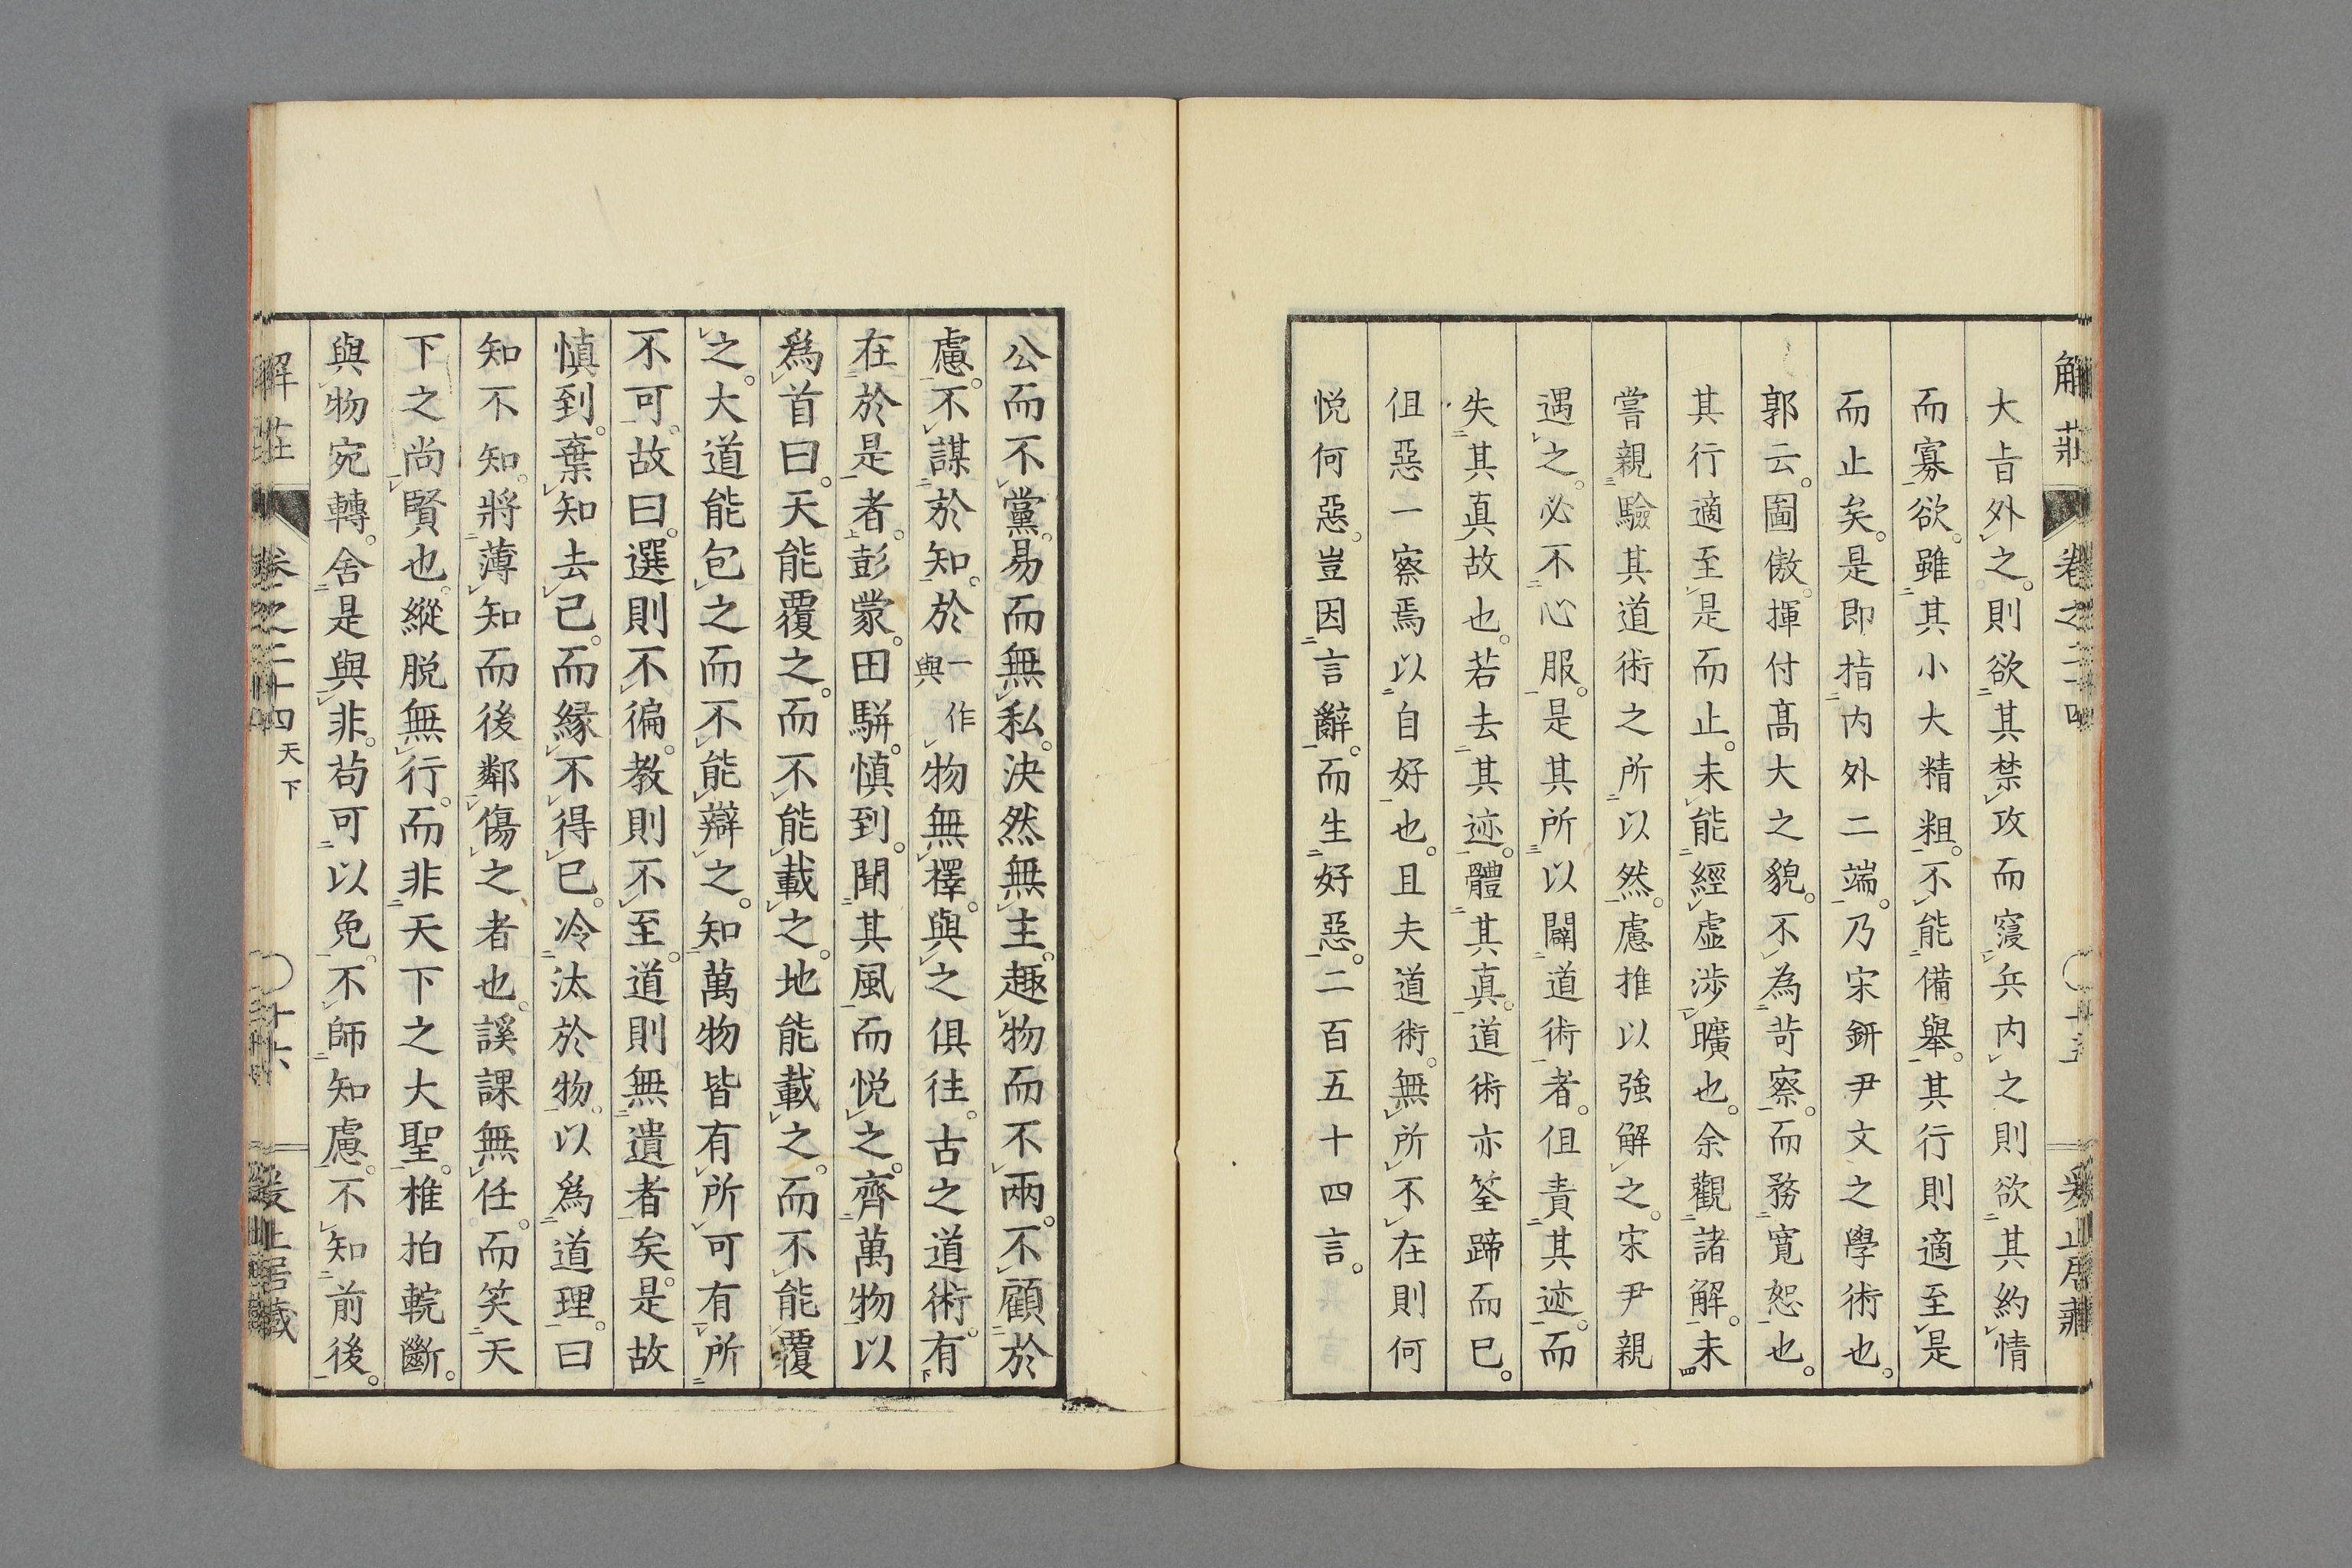 解莊 卷之二十四 十五
大㫖外之。則欲其禁攻而寢兵内之則欲其約情
而寡欲。雖其小大精粗。不能備舉。其行則適至是
而止矣。是即指内外二端。乃宋鈃尹文之學術也。
郭云。圖傲。揮付髙大之貌。不為苛察。而務寬恕也。
其行適至是而止。未能經虛渉曠也。余觀諸解。未
嘗親驗其道術之所以然。慮推以強解之。宋尹親
遇之。必不心服。是其所以闢道術者。但責其迹。而
失其真故也。若去其迹。體其真。道術亦筌蹄而已。
但惡一察焉以自好也。且夫道術。無所不在則何
悦何惡。豈因言辭。而生好惡。二百五十四言。
公而不黨。易而無私。決然無主。趣物而不兩。不顧於
慮。不謀於知。於一作與物無擇。與之俱往。古之道術。有
在於是者。彭蒙。田駢。慎到。聞其風而悦之。齊萬物以
爲首曰。天能覆之。而不能載之。地能載之。而不能覆
之。大道能包之而不能辯之。知萬物皆有所可有所
不可。故曰。選則不徧。教則不至。道則無遺者矣。是故
慎到。棄知去己。而縁不得已。冷汰於物。以爲道理。曰
知不知。將薄知而後鄰傷之者也。謑課無任。而笑天
下之尚賢也。縱脱無行。而非天下之大聖。椎拍輐斷。
與物宛轉。舍是與非。苟可以免。不師知慮。不知前後。
解莊 卷之二十四 天下 十六